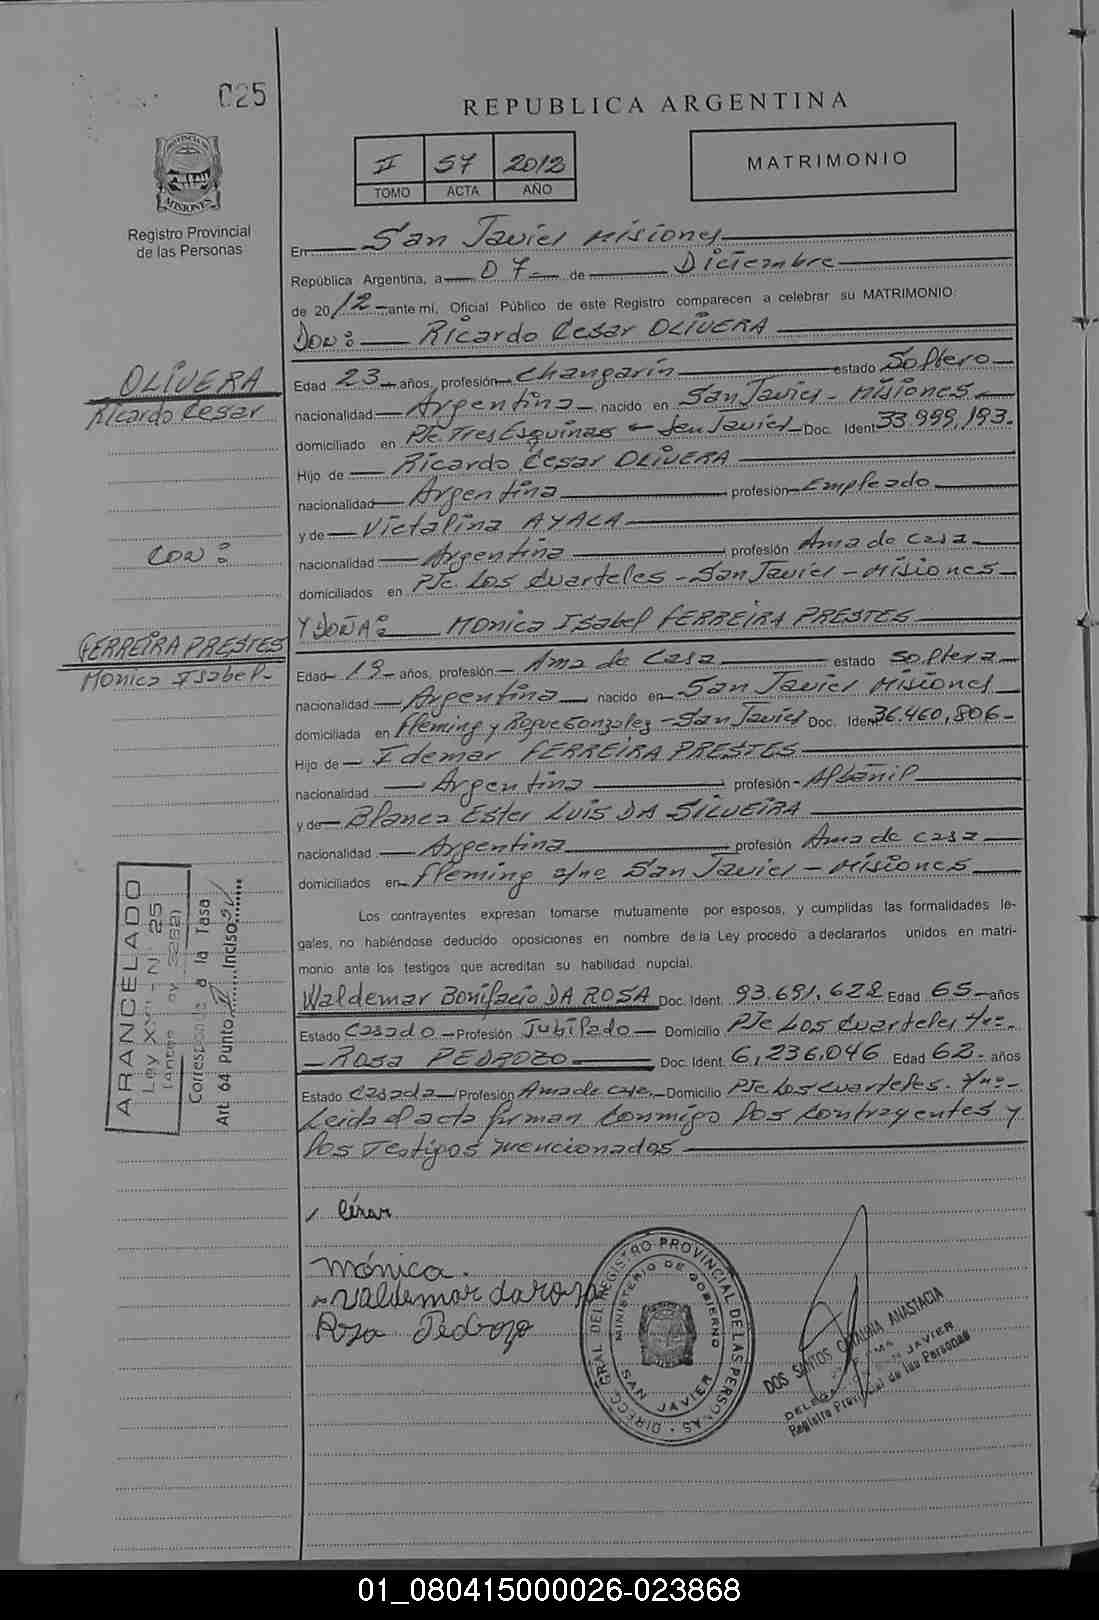 025
REPUBLICA ARGENTINA
II 57 2012
TOMO ACTA AÑO
MATRIMONIO
PROVINCIA DE
MISIONES
Registro Provincial
de las Personas
En San Javier Misiones
República Argentina, a 07 de Diciembre
de 2012 ante mí, Oficial Público de este Registro comparecen a celebrar su MATRIMONIO
DON: Ricardo Cesar OLIVERA
OLIVERA
Ricardo Cesar
Edad 23 años, profesión Changarin estado Soltero
nacionalidad Argentina nacido en San Javier - Misiones
domiciliado en Pje Tres Esquinas - San Javier Doc. Ident 33.999.193.
Hijo de Ricardo Cesar OLIVERA
nacionalidad Argentina profesión Empleado
y de Victalina AYALA
CON:
nacionalidad Argentina profesión Ama de casa
domiciliados en Pje Los Cuarteles - San Javier - Misiones
Y DOÑA: Monica Isabel FERREIRA PRESTES
FERREIRA PRESTES
Monica Isabel-
Edad 19 años, profesión Ama de Casa estado soltera
nacionalidad Argentina nacido en San Javier Misiones
domiciliada en Fleming y Roque Gonzalez - San Javier Doc. Iden 36.460.806-
Hijo de Idemar FERREIRA PRESTES
nacionalidad Argentina profesión - Albañil
y de Blanca Ester LUIS DA SILVEIRA
nacionalidad Argentina profesión Ama de casa
domiciliados en Fleming s/nº San Javier - Misiones
Los contrayentes expresan tomarse mutuamente por esposos, y cumplidas las formalidades le-
gales, no habiéndose deducido oposiciones en nombre de la Ley procedo a declararlos unidos en matri-
monio ante los testigos que acreditan su habilidad nupcial.
Waldemar Bonifacio DA ROSA Doc. Ident. 93.691.628 Edad 65 años
Estado Casado Profesión Jubilado Domicilio Pje Los Cuarteles s/nº-
Rosa PEDROZO Doc. Ident. 6,236.046 Edad 62 años
Estado Casada Profesión Ama de casa Domicilio Pje Los Cuarteles - s/nº-
Leida el acta firman conmigo los contrayentes y
los testigos mencionados
ARANCELADO
Ley XXVII - N° 25
Corresponde a la Tasa
Art. 64 Punto II Inciso
César
Mónica.
Valdemar da rosa
Rosa Pedrozo
DIRECC. GRAL. DEL REGISTRO PROVINCIAL DE LAS PERSONAS
MINISTERIO DE GOBIERNO
SAN JAVIER
DOS SANTOS CATALINA ANASTACIA
JAVIER
Registro Provincial de las Personas
01_080415000026-023868